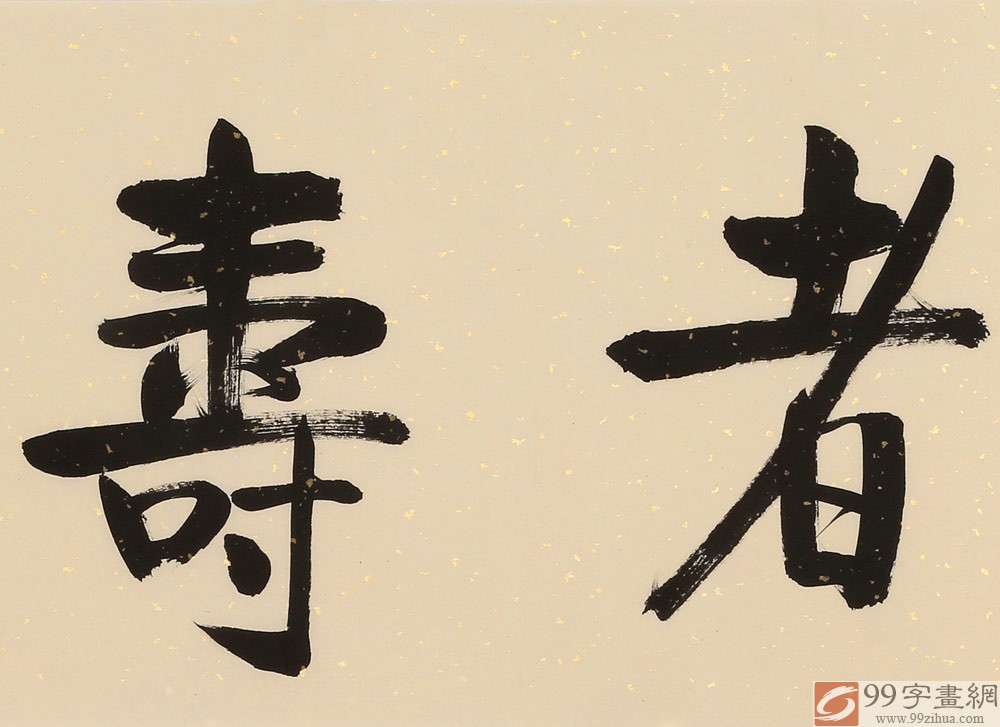 者壽
99字畫網
www.99zihua.com